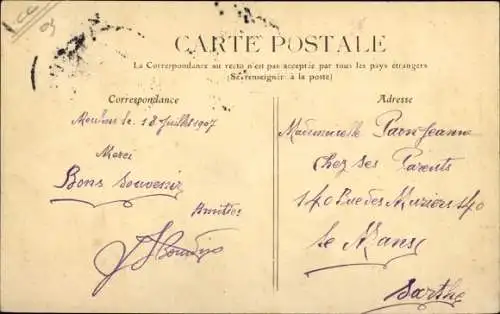 CARTE POSTALE
La Correspondance au recto n'est pas acceptée par tous les pays étrangers
(Se renseigner à la poste)
Correspondance
Adresse
Moulins le 18 Juillet 1907
Merci
Bons Souvenirs
Amitiés
Mademoiselle Jeanne
Chez ses Parents
140 Rue des 140
Le Mans
Sarthe